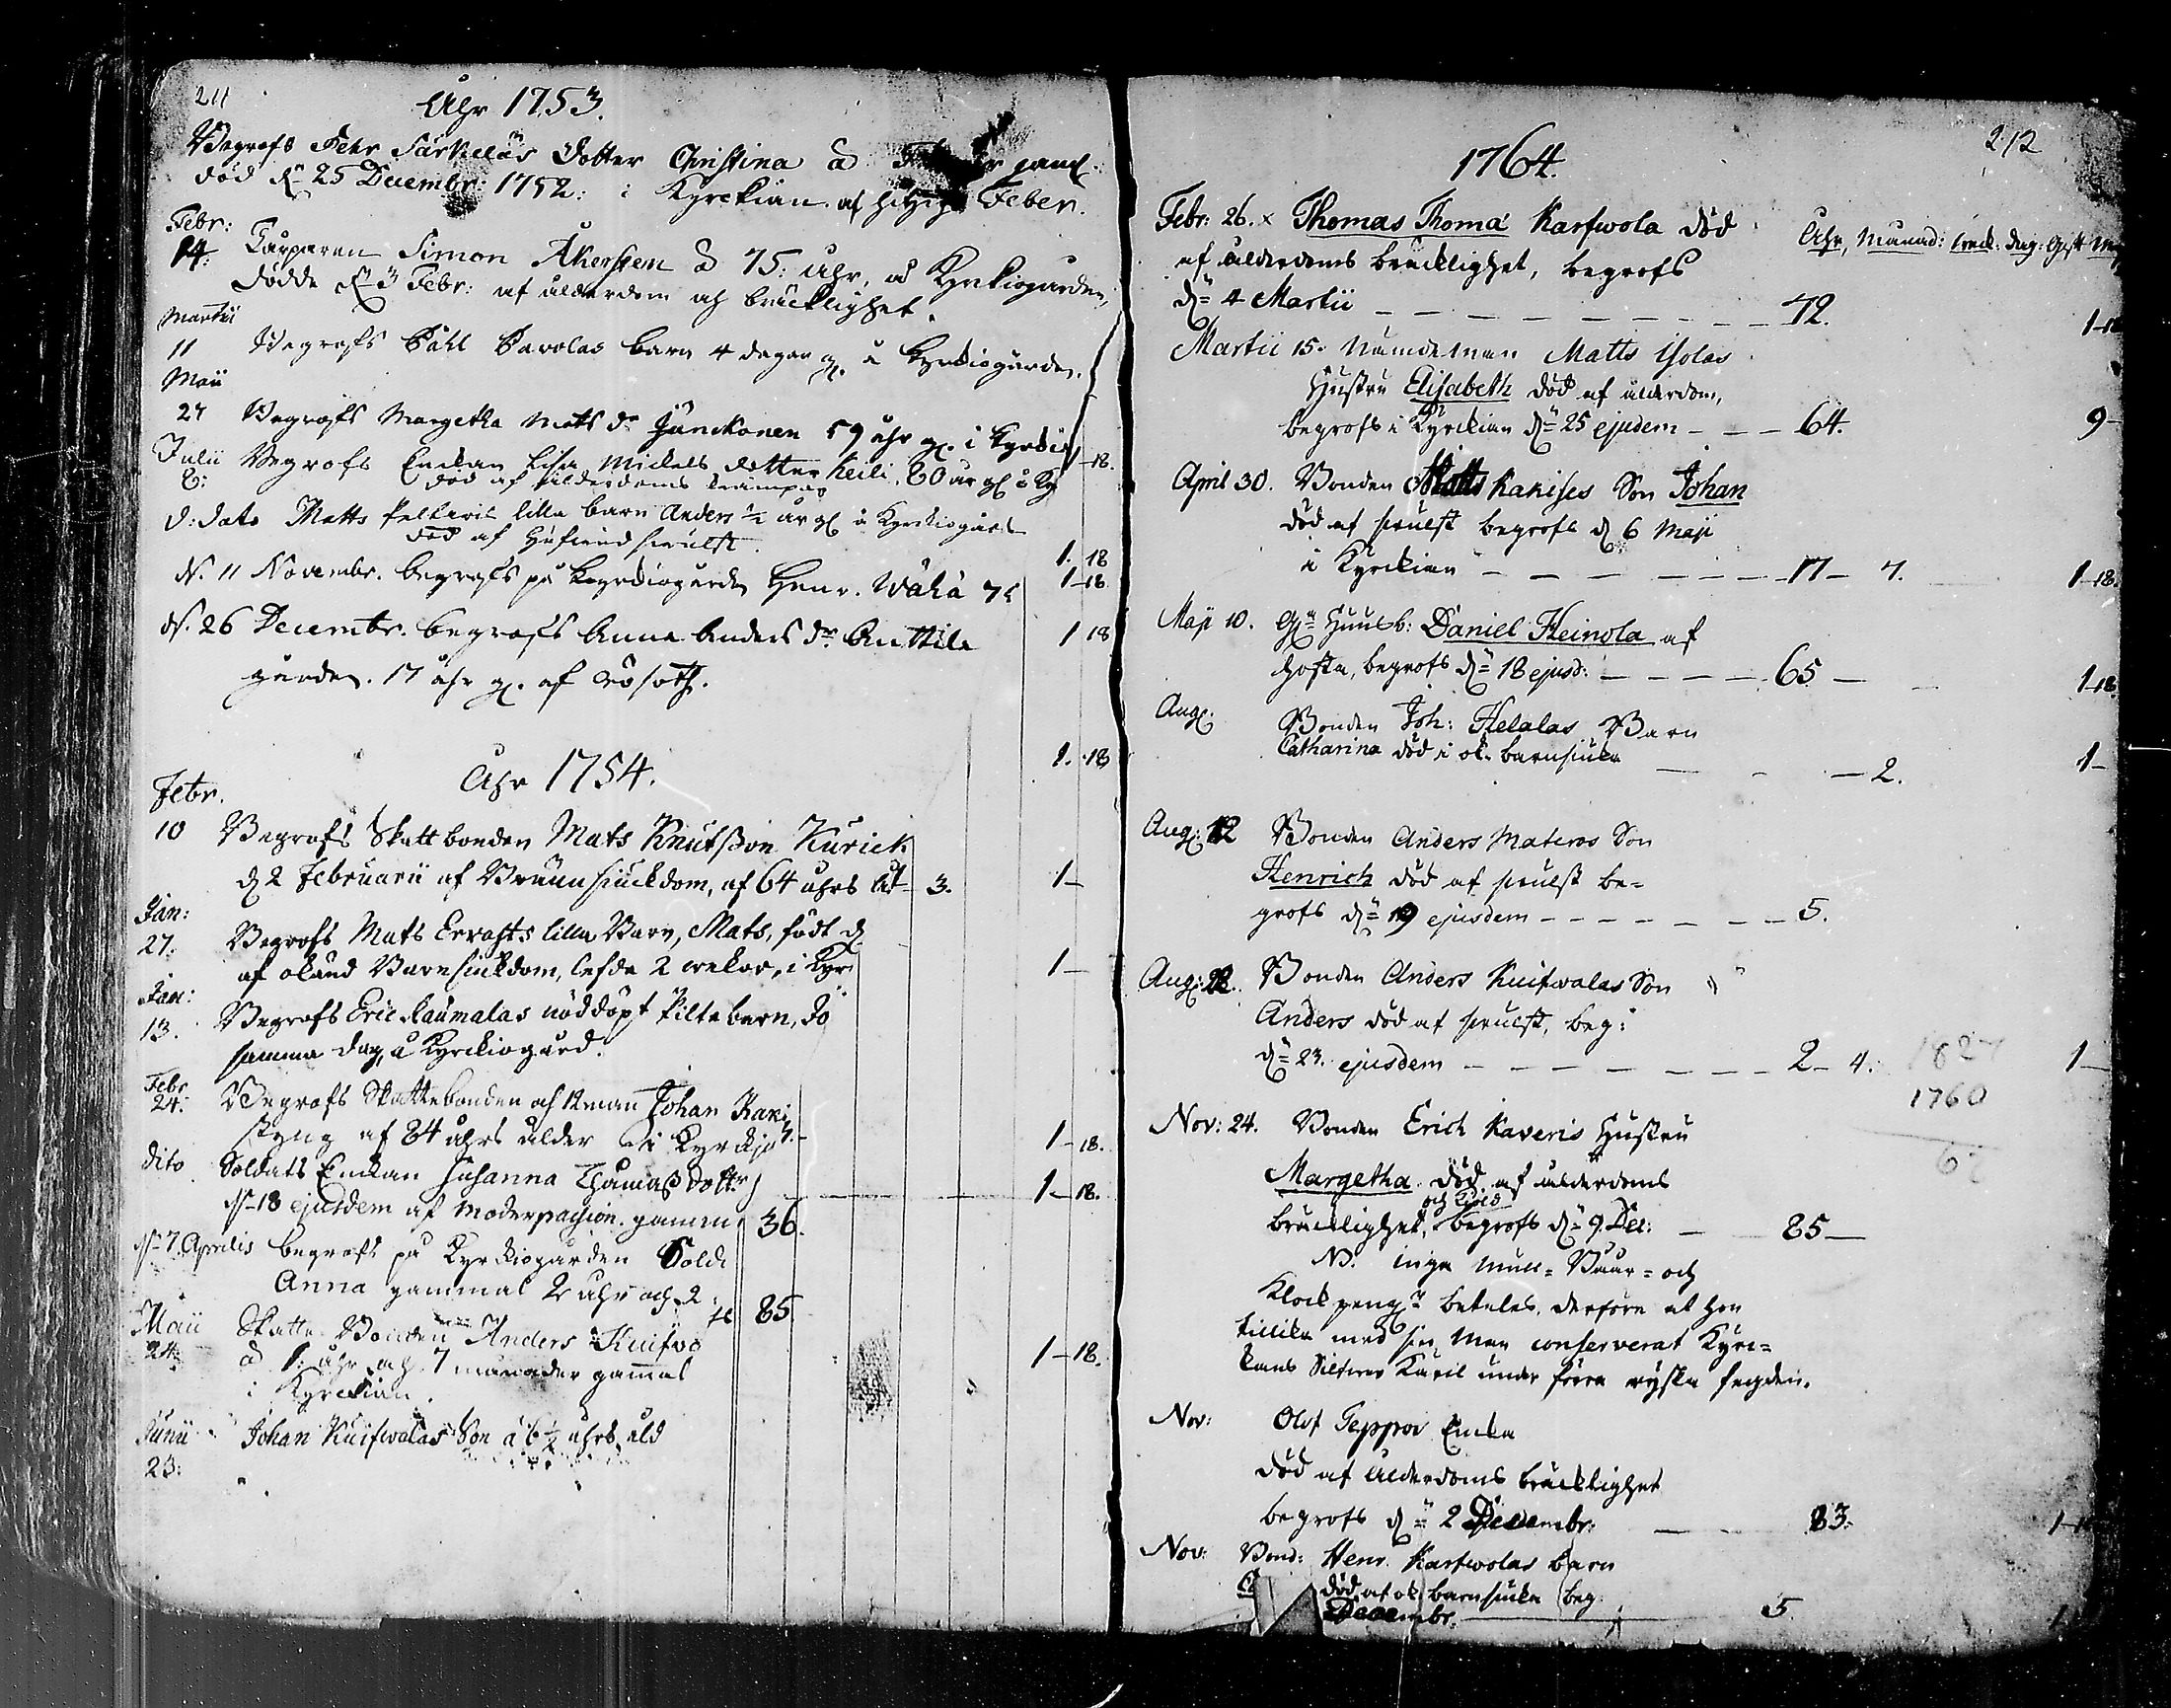 211
Åhr 1753.
Begrofs Pehr Särkeläs dotter Christina
död dn 25 Decembr: 1752: i Kyrckian. af hitzig Feber.
Febr:
14. Simon Åkersten å 75: åhr, å Kyrkiogården,
dödde dn 3 Febr: af ålderdom och bräcklighet.
Martii
11 Begrofs Påhl Pavolas barn 4 dagar g. å Kyrkiogården.
Maii
27 Begrofs Margetha Mats dr Junckonen 59 åhr g. i Kyrckia 18.
Julii Begrofs Enckan Lisa Mickels dotter Keili, 80 år gl å Ky
8: död af ålderdoms krämpor
d: dato Matts lilla barn Anders 1/2 år gl å Kyrckiogård
död af 1. 18
d. 11 Novembr. begrofs på Kyrckiogården Henr. Wähä 75 1-18.
d. 26 Decembr. begrofs Anna Anders dr Anttila 1 18
gården. 17 åhr g. af rösoth.
1. 18
Åhr 1754.
Febr.
10 Begrofs Skattbonden Mats Knutsson Kurick
d 2 Februarii af Brännsiuckdom, af 64 åhrs ål- 3. 1-
Jan:
27. Begrofs Mats Errasts lilla Barn, Mats, födt d
af okänd Barnsiukdom, lefde 2 wekor, i Kyr 1-
Jan:
13. Begrofs Eric Raumalas nöddöpt Piltebarn, dö
samma dag, å Kyrckiogård.
Febr
24. Begrofs Skattebonden och 12man Johan Kaki
af 84 åhrs ålder i Kyrckja 4.- 1-18.
dito Soldats Enckan Susanna Thomas dotter 1-18.
d 18 ejusdem af Moderpassion. gammal 36.
d 7. Aprilis begrofs på Kyrckiogården Solda
Anna gammal 2 åhr och 2
Maii Skatte Bonden Anders Kuifwo 85
24. å 1: åhr och 7 månader gammal 1-18.
i Kyrckian.
Junii Johan Kuifwalas Son å 6 1/2 åhrs åld
23:
212
1764.
Åhr, Månad: weck: dag:
Febr: 26. x Thomas Thoma Karfwola död
af ålderdoms bräcklighet, begrofs
dn 4 Martii 72. 1-18
Martii 15. Nämdeman Matts Isolas
Hustru Elisabeth död af ålderdom,
begrofs i Kyrckian dn 25 ejusdem 64. 9-
April 30. Bonden Matts Kakises Son Johan
död af swulst begrofs d 6 Maji
i Kyrckian 17- 7. 1-18.
Maji 10. Gn Huusb: Daniel Heinola af
hosta, begrofs dn 18 ejusd: 65- 1-18.
Aug. Bonden Joh: Helalas Barn
Catharina död i ok. barnsiuka 2. 1-
Aug: 12 Bonden Anders Materos Son
Henrich död af swulst be-
grofs dn 19 ejusdem 5.
Aug: 22. Bonden Anders Kuifwalas Son
Anders död af swulst, beg:
dn 23. ejusdem 2- 4. 1-
1827
1760
67
Nov: 24. Bonden Erich Kaveris Hustru
Margetha död af ålderdoms
och
bräcklighet, begrofs dn 9 Dec: 85-
NB. inga mull- Båår- och
Klockpengr betales, derföre at hon
tillika med sin Man conserverat Kyrc-
kans Silfwer Karil under förra ryska fegden.
Nov: Olof Seppos Encka
död af ålderdoms bräcklighet
begrofs dn 2 Decembr: 83. 1-
Nov: Bond: Henr. Karfwolas barn
död af ok. barnsiuka beg.
Decembr. 5 1